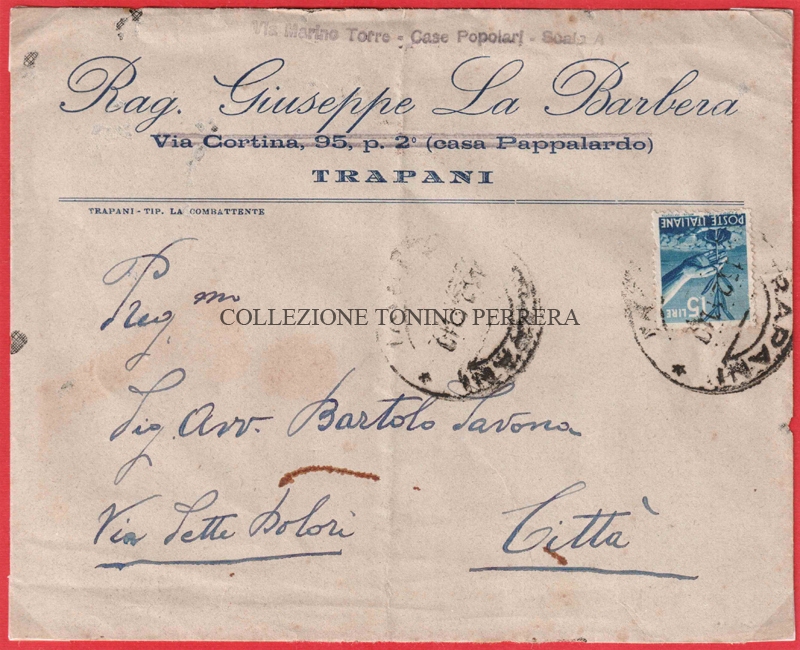 Via Marino Torre - Case Popolari - Scala A
Rag. Giuseppe La Barbera
Via Cortina, 95, p. 2° (casa Pappalardo)
TRAPANI
TRAPANI - TIP. LA COMBATTENTE
POSTE ITALIANE
15 LIRE
TRAPANI
TRAPANI
Preg mo
COLLEZIONE TONINO PERRERA
Sig. Avv. Bartolo Savona
Via Sette Dolori
Città